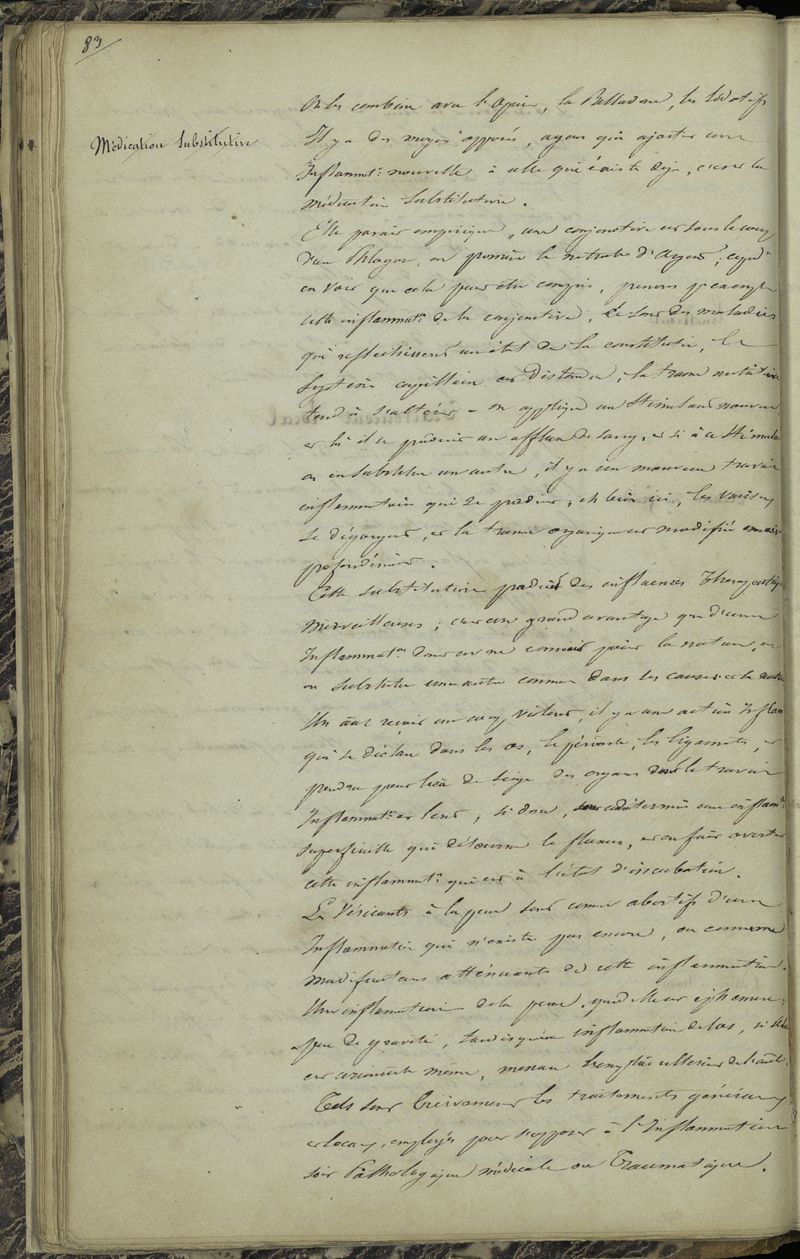 83
Médication Substitutive
On les combine avec l'opium, la Belladone, les sédatifs
Il y a des moyens opposés, ayant qui ajouter une
Inflammat.n nouvelle à celle qui existe déjà, c'est la
médication substitutive.
Elle paraît empirique, une conjonctive est sous le coup
d'un Phlegmon, on promène le nitrate d'argent; cepend.t
on voit que cela peut être compris, prenons p. exemple
cette inflammat.n de la conjonctive. Ce sont des maladies
qui réfléchissent un état de la constitution, le
système capillaire est distendu, la trame nutritive
tend à s'altérer - on applique un stimulant nouveau
et là il se produit un afflux de sang, et si à ce stimulus
on en substitue un autre, il y a un nouveau travail
inflammatoire qui se produit, eh bien ici, les vaisseaux
se dégorgent, et la trame organique est modifiée
profondément.
Cette substitution produit des influences Thérapeutiques
merveilleuses; c'est un grand avantage que d'une
Inflammat.on dont on ne connait point la nature, on
en substitue une autre connue dans les causes
Un reçoit un coup violent, il y a une action Inflam
qui se déclare dans les os, le périoste, les ligaments, et
prendra pour lieu de siège des organes dont le travail
Inflammat.n est lent, si donc, on détermine une inflamt.
superficielle qui détourne le fluxus, et on fait avorter
cette inflammat.n qui est à l'état d'incubation.
Les Vésicants à la peau sont comme abortifs d'une
Inflammation qui n'existe pas encore, ou comme
modificateurs atténuants de cette inflammation.
Une inflammation de la peau, quand elle est éphémère,
a peu de gravité, tandis qu'une inflammation de l'os, si elle
est existante même, menace
Tels sont brièvement les traitements généraux
et locaux, employés pour s'opposer à l'Inflammation
soit Pathologique médicale ou Traumatique.